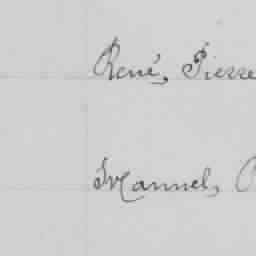 René, Pierre
Mannel,